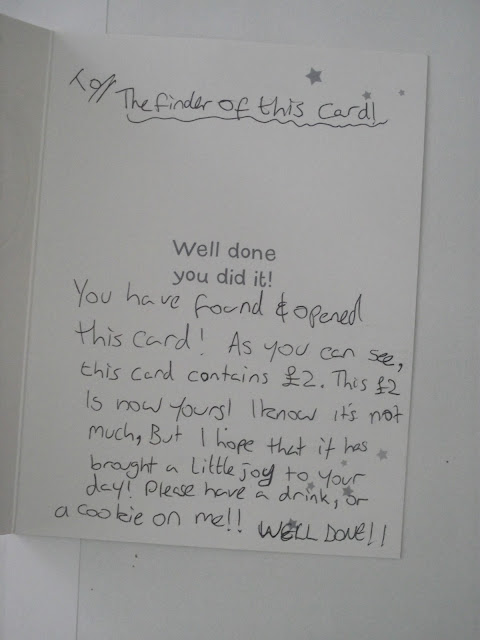 To//
The finder of this card!
Well done
you did it!
You have found & opened
this card! As you can see,
this card contains £2. This £2
Is now yours! I know it's not
much, But I hope that it has
brought a little joy to your
day! Please have a drink, or
a cookie on me!! WELL DONE!!